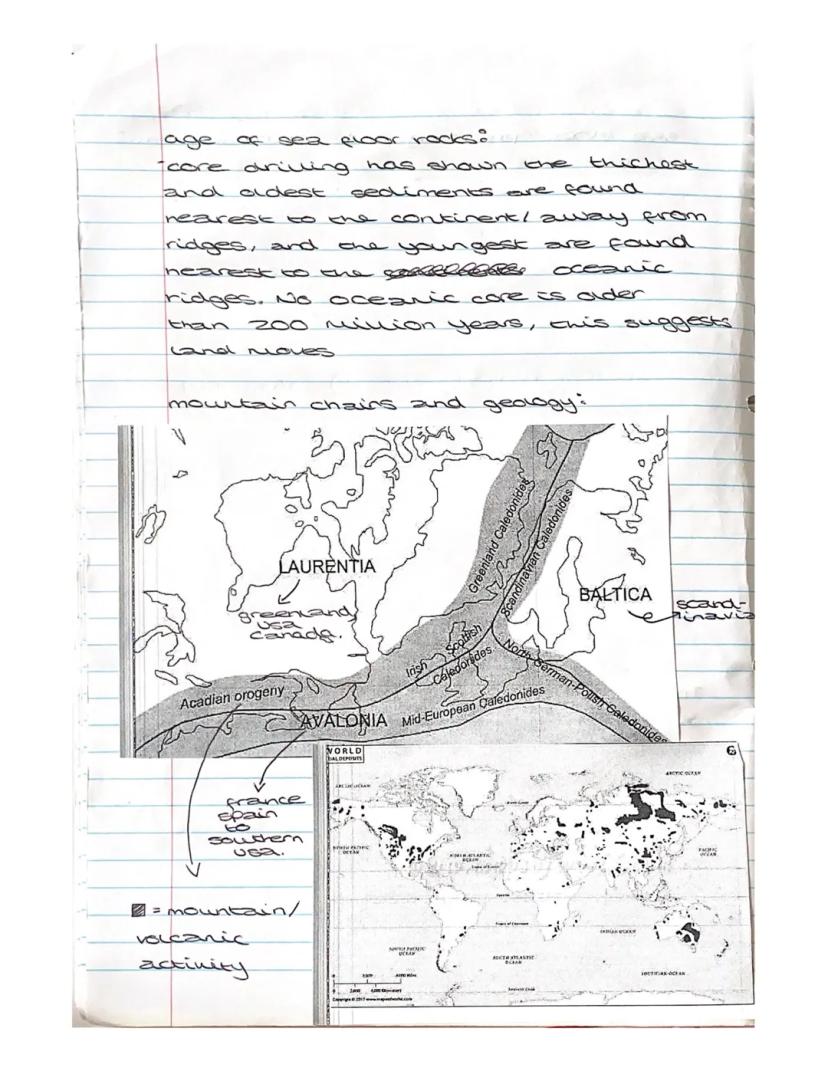 age of sea floor rocks:
-core drilling has shown the thickest
and oldest sediments are found
nearest to the continent/away from
ridges, and the youngest are found
nearest to the oceanic
ridges. No oceanic core is older
than 200 million years, this suggests
land moves
mountain chains and geology:
LAURENTIA
greenland
usa
canada.
Greenland Caledonides
Scandinavian Caledonides
BALTICA
scand-
inavia
Irish Scottish
Caledonides
North German-Polish Caledonides
Acadian orogeny
AVALONIA
Mid-European Caledonides
france
spain
to
southern
usa.
= mountain/
volcanic
activity
WORLD
ARCTIC OCEAN
ARCTIC OCEAN
NORTH PACIFIC
OCEAN
NORTH ATLANTIC
OCEAN
PACIFIC
OCEAN
INDIAN OCEAN
SOUTH PACIFIC
OCEAN
SOUTH ATLANTIC
OCEAN
SOUTHERN OCEAN